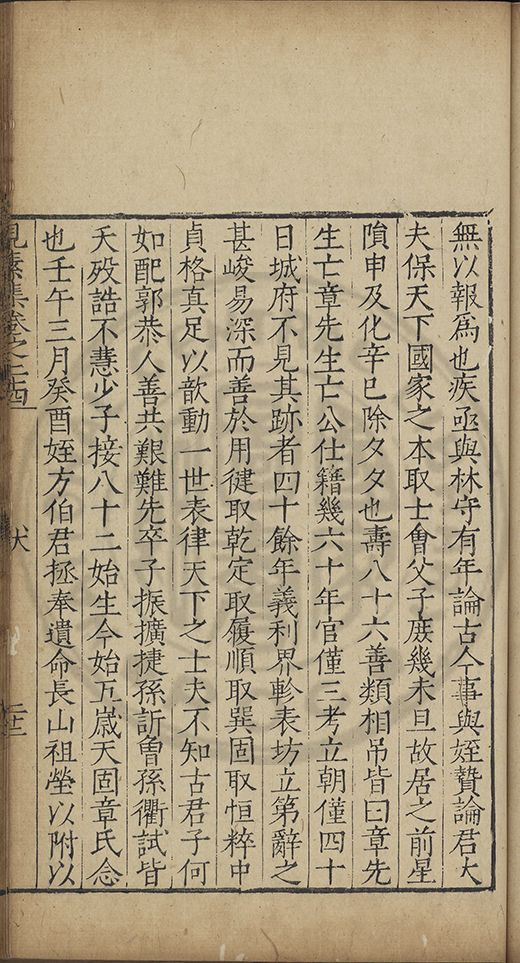 無以報爲也疾亟與林守有年論古今事與姪贄論君大
夫保天下國家之本取士會父子庶幾未旦故居之前星
隕申及化辛巳除夕夕也壽八十六善類相吊皆曰章先
生亡章先生亡公仕籍幾六十年官僅三考立朝僅四十
日城府不見其跡者四十餘年義利界軫表坊立第辭之
甚峻易深而善於用徤取乾定取履順取巽固取恒粹中
貞格真足以歆動一世表律天下之士夫不知古君子何
如配郭恭人善共艱難先卒子振擴捷孫訢魯孫衢試皆
夭歿誥不慧少子接八十二始生今始五歲天固章氏念
也壬午三月癸酉姪方伯君拯奉遺命長山祖塋以附以
見素集卷之二四